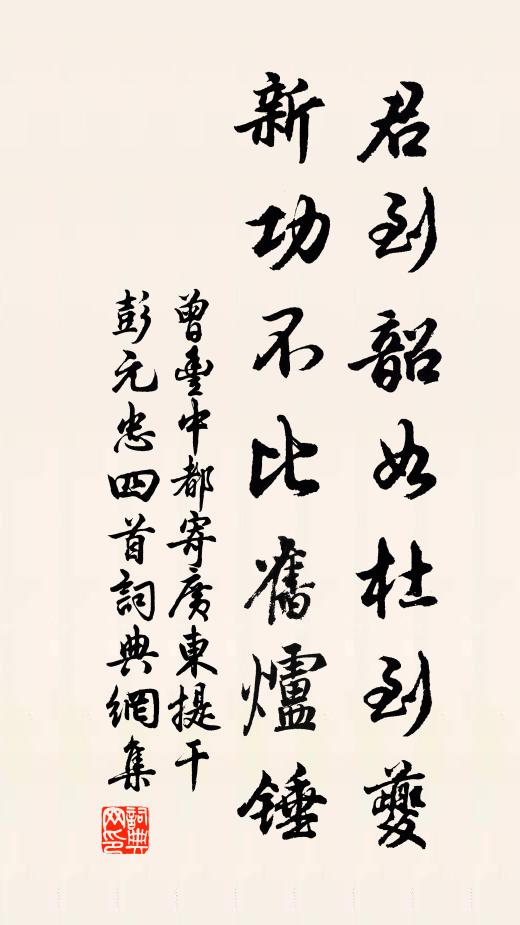 君到韶如杜到夔
新功不比舊爐錘
曾豐中都寄廣東提干
彭元忠四首詞典網集
詞典
网印